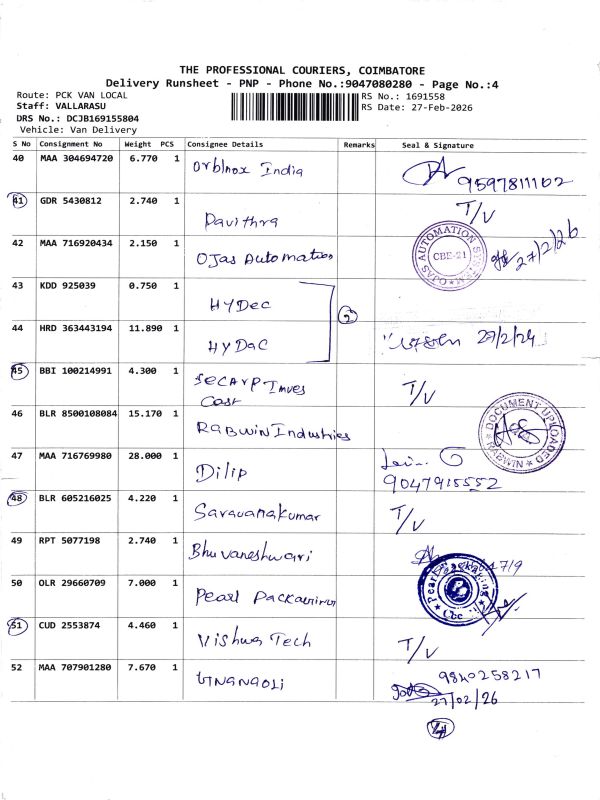 THE PROFESSIONAL COURIERS, COIMBATORE
Delivery Runsheet - PNP - Phone No.:9047080280 - Page No.:4
Route: PCK VAN LOCAL
Staff: VALLARASU
DRS No.: DCJB169155804
Vehicle: Van Delivery
RS No.: 1691558
RS Date: 27-Feb-2026
S No Consignment No Weight PCS Consignee Details Remarks Seal & Signature
40 MAA 304694720 6.770 1 Orbinox India 9597811102
41 GDR 5430812 2.740 1 Pavithra T/V
42 MAA 716920434 2.150 1 OJas Automation OJAS AUTOMATION CBE-21 27/2/26
43 KDD 925039 0.750 1 HYDec
2
44 HRD 363443194 11.890 1 HYDaC
45 BBI 100214991 4.300 1 Cast T/V
46 BLR 8500108084 15.170 1 RABWIN Industries DOCUMENT UPLOADED RABWIN
47 MAA 716769980 28.000 1 Dilip 9047915552
48 BLR 605216025 4.220 1 Saravanakumar T/V
49 RPT 5077198 2.740 1 Bhuvaneshwari
50 OLR 29660709 7.000 1 Pearl Pearl Packaging Cbe
51 CUD 2553874 4.460 1 Vishwa Tech T/V
52 MAA 707901280 7.670 1 9840258217
27/02/26